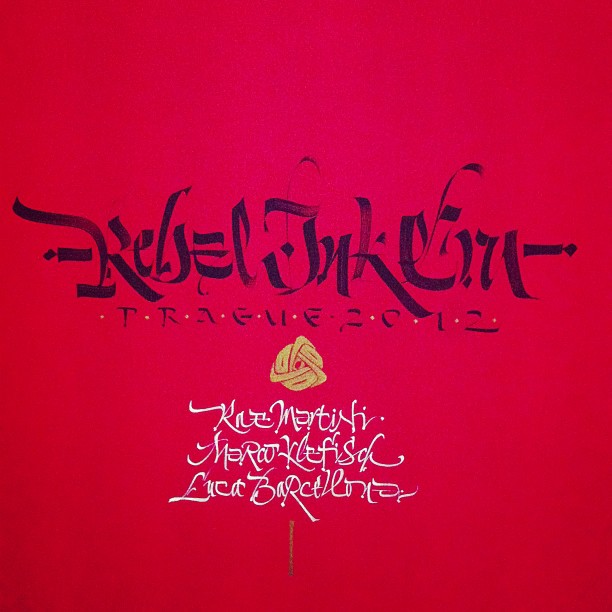 Rebel Ink Em
·P·R·A·G·U·E·2·0·1·2·
Rae Martini·
Marco Klefisch
Luca Barcellona